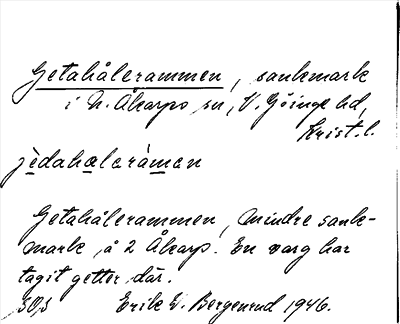 Getahålerammen, sankmark
i N. Åkarps sn, V. Göinge hd,
Krist. l.
jèdahaleràmen
Getahålerammen, mindre sank-
mark å 2 Åkarp. En varg har
tagit getter där.
Erik E. Bergenrud 1946.